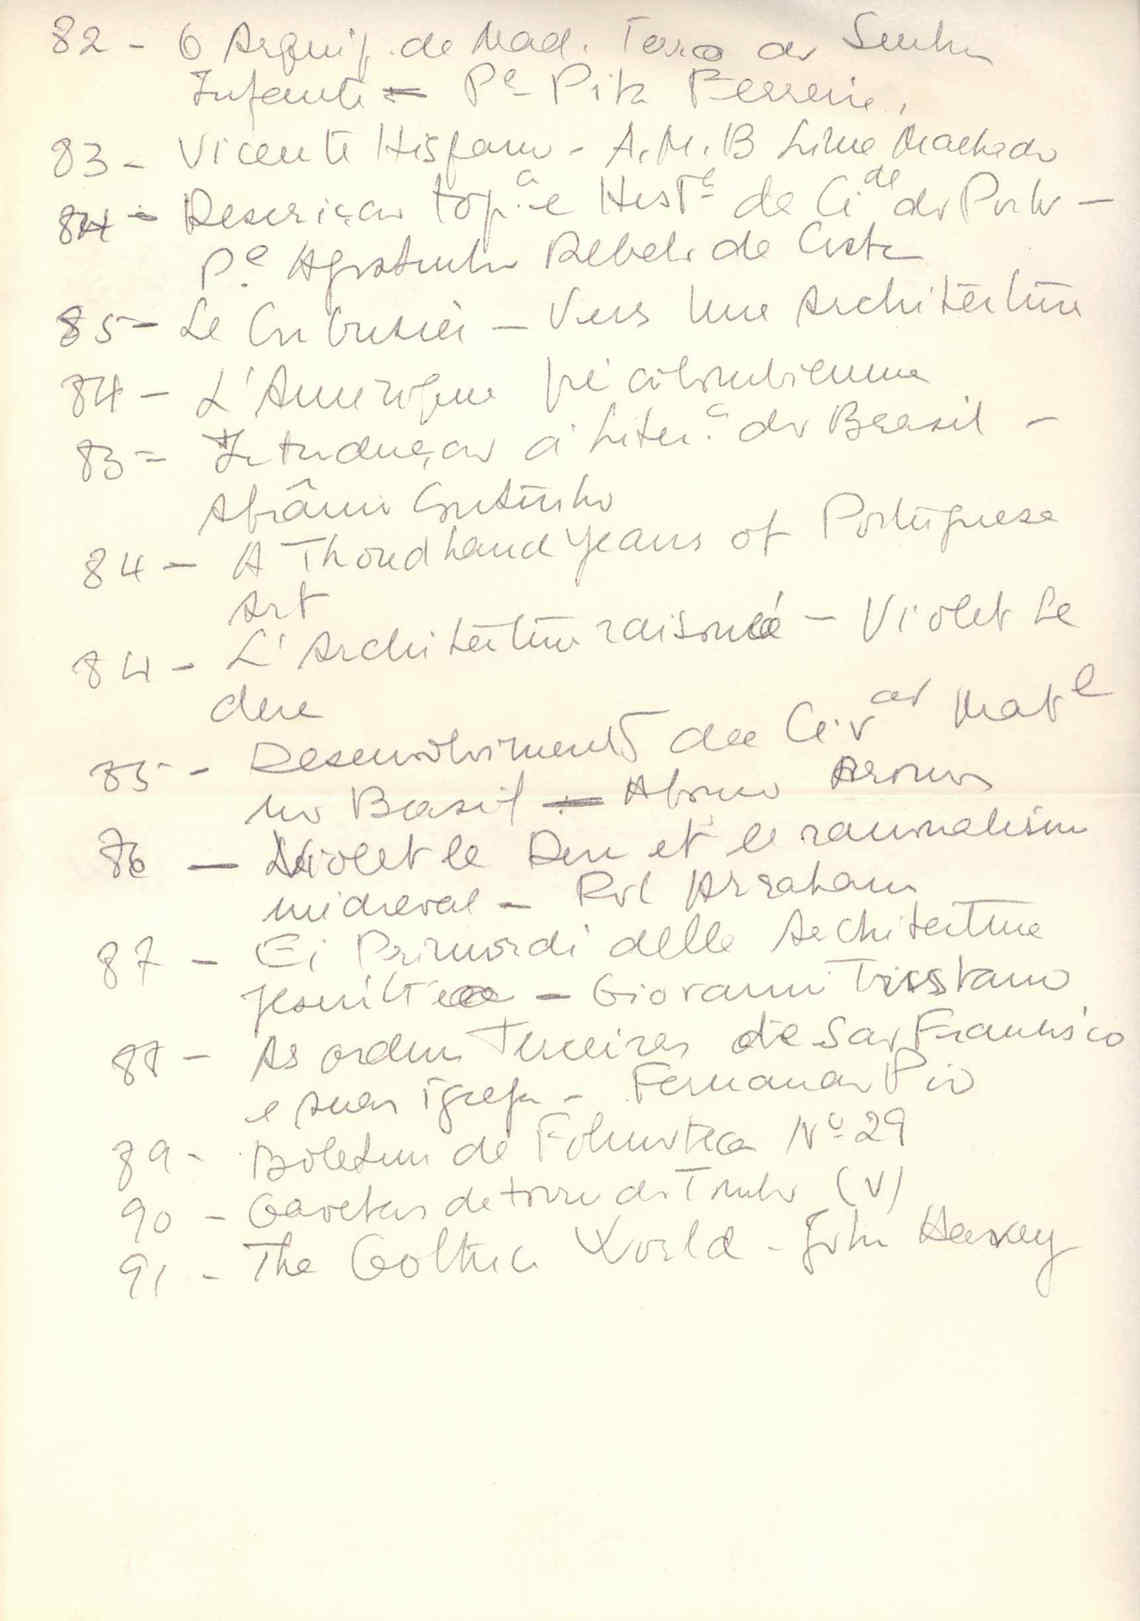 82 - O Arquip. de Mad. Terra do Senhor
Infante - Pe Pita Ferreira,
83 - Vicente Hispano - A. M. B Lima Machado
84 - Descrição top.ca e Histe de Cide do Porto -
P.e Agostinho Rebelo de Costa
85 - Le Corbusier - Vers Une Architecture
84 - L'Amerique pré colombienne
83 - Introdução á Liter.a do Brasil -
Afrânio Coutinho
84 - A Thoudhand Years of Portuguese
Art
84 - L'Architecture raisonée - Violet Le
duc
85 - Desenvolvimento da Civão Matel
no Brasil - Afonso Arinos
86 - Violet le Duc et le racionalisme
medieval - Pol Abraham
87 - Ei Primordi delle Architecture
Jesuitica - Giovanni Tristano
88 - As ordens Terceiras de São Francisco
e suas igrejas - Fernando Pio
89 - Boletim de Filmoteca Nº 29
90 - Gavetas da torre do Tombo (V)
91 - The Gothic World - John Harvey